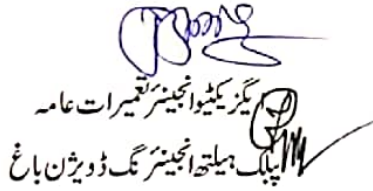 ایگزیکٹیو انجینئر تعمیرات عامہ
پبلک ہیلتھ انجینئرنگ ڈویژن باغ